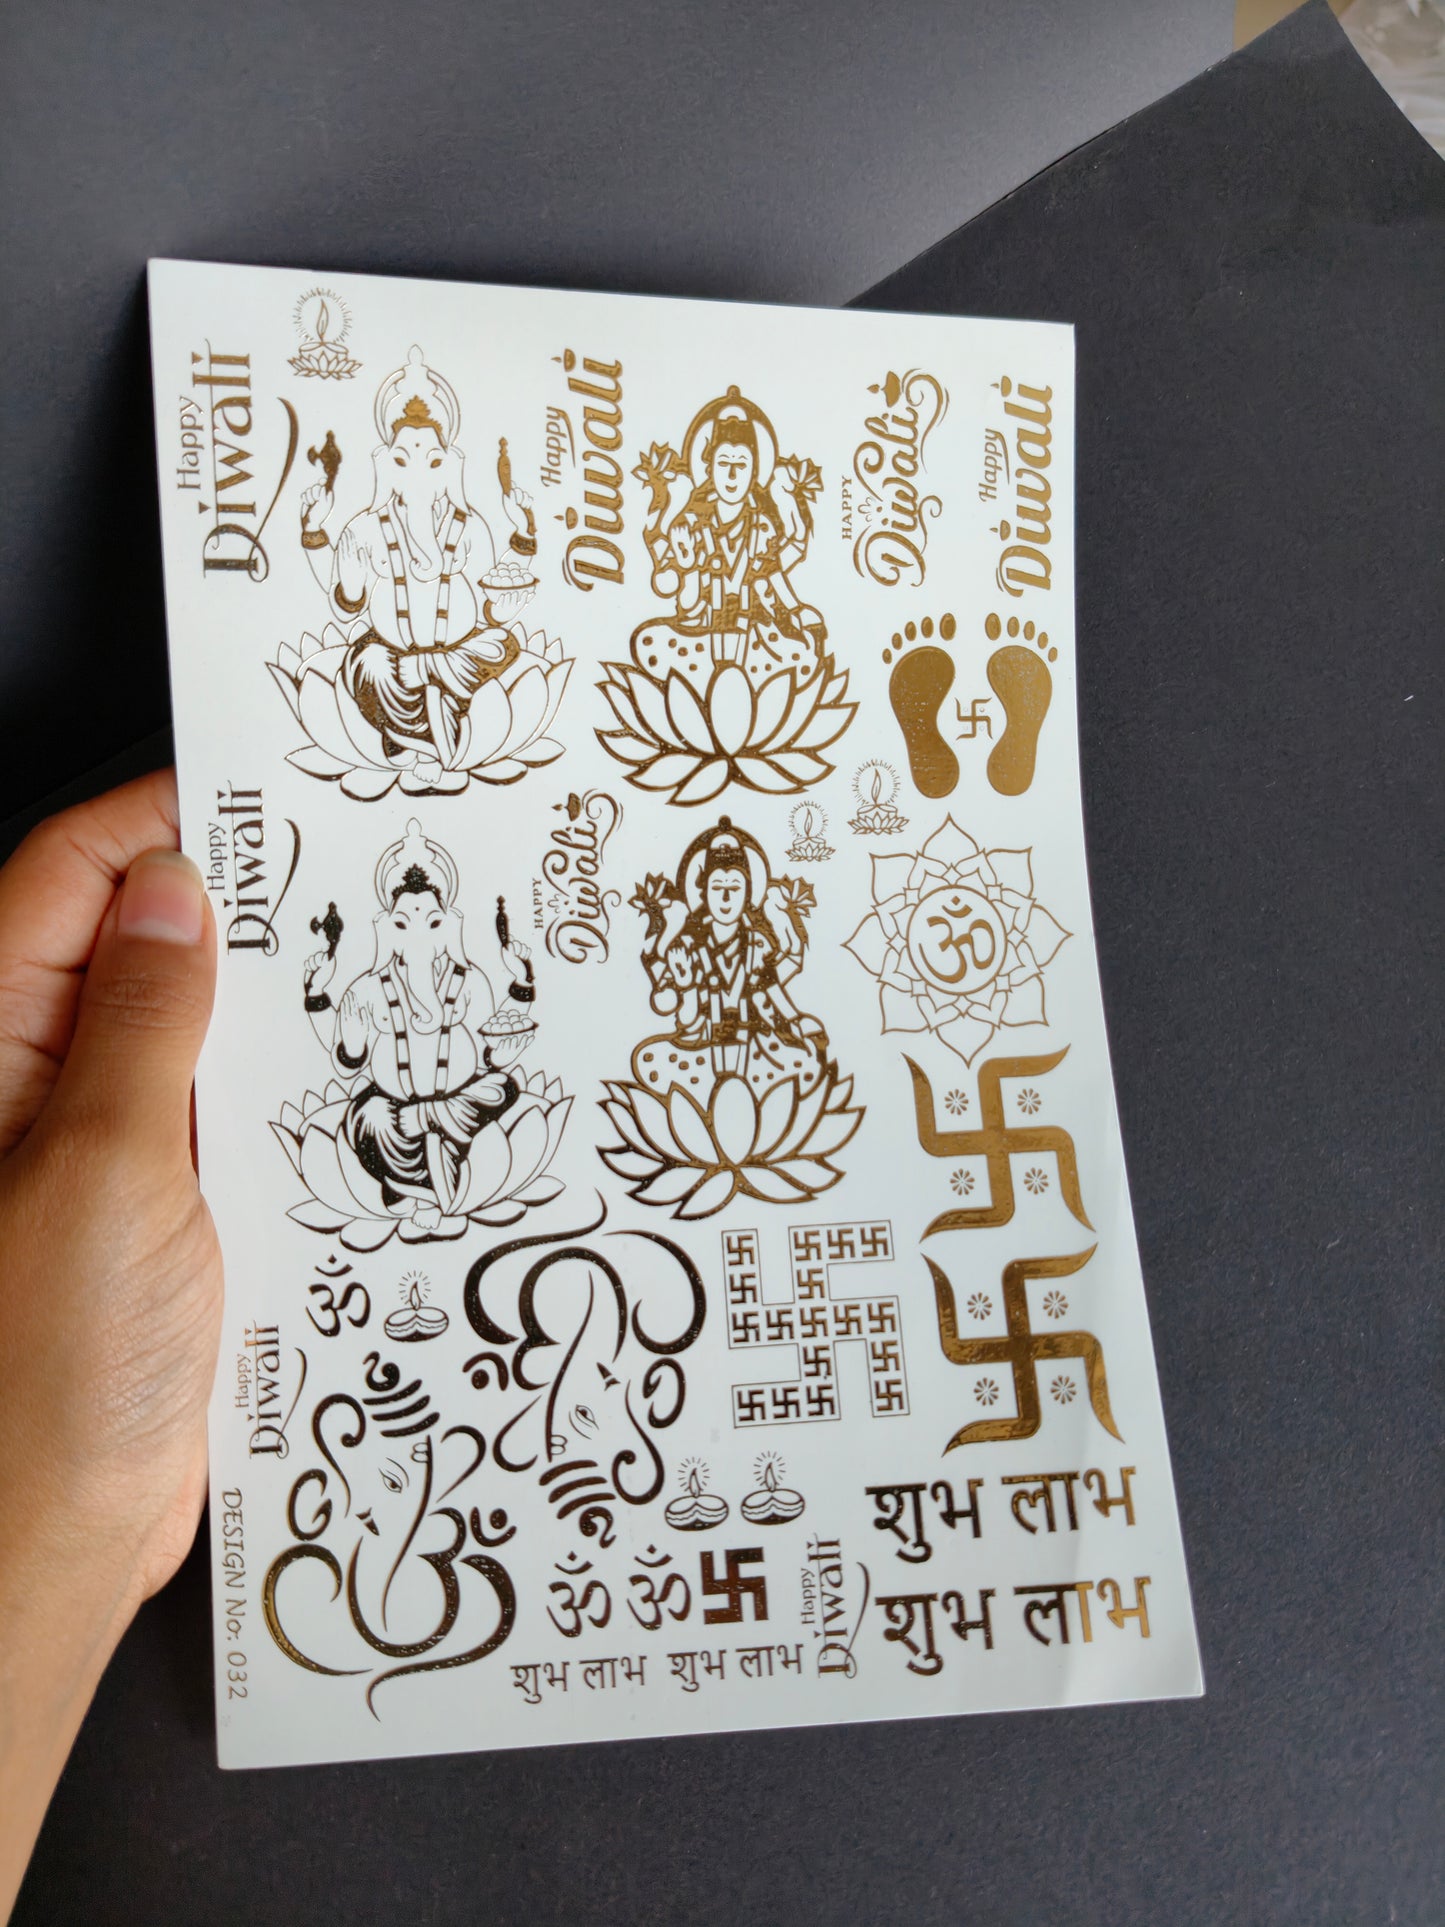 Happy
Diwali
Happy
Diwali
HAPPY
Diwali
Happy
Diwali
Happy
Diwali
HAPPY
Diwali
ॐ
ॐ
Happy
Diwali
ॐ
ॐ
ॐ
ॐ
शुभ लाभ
शुभ लाभ
शुभ लाभ शुभ लाभ
Happy
Diwali
DESIGN No: 032